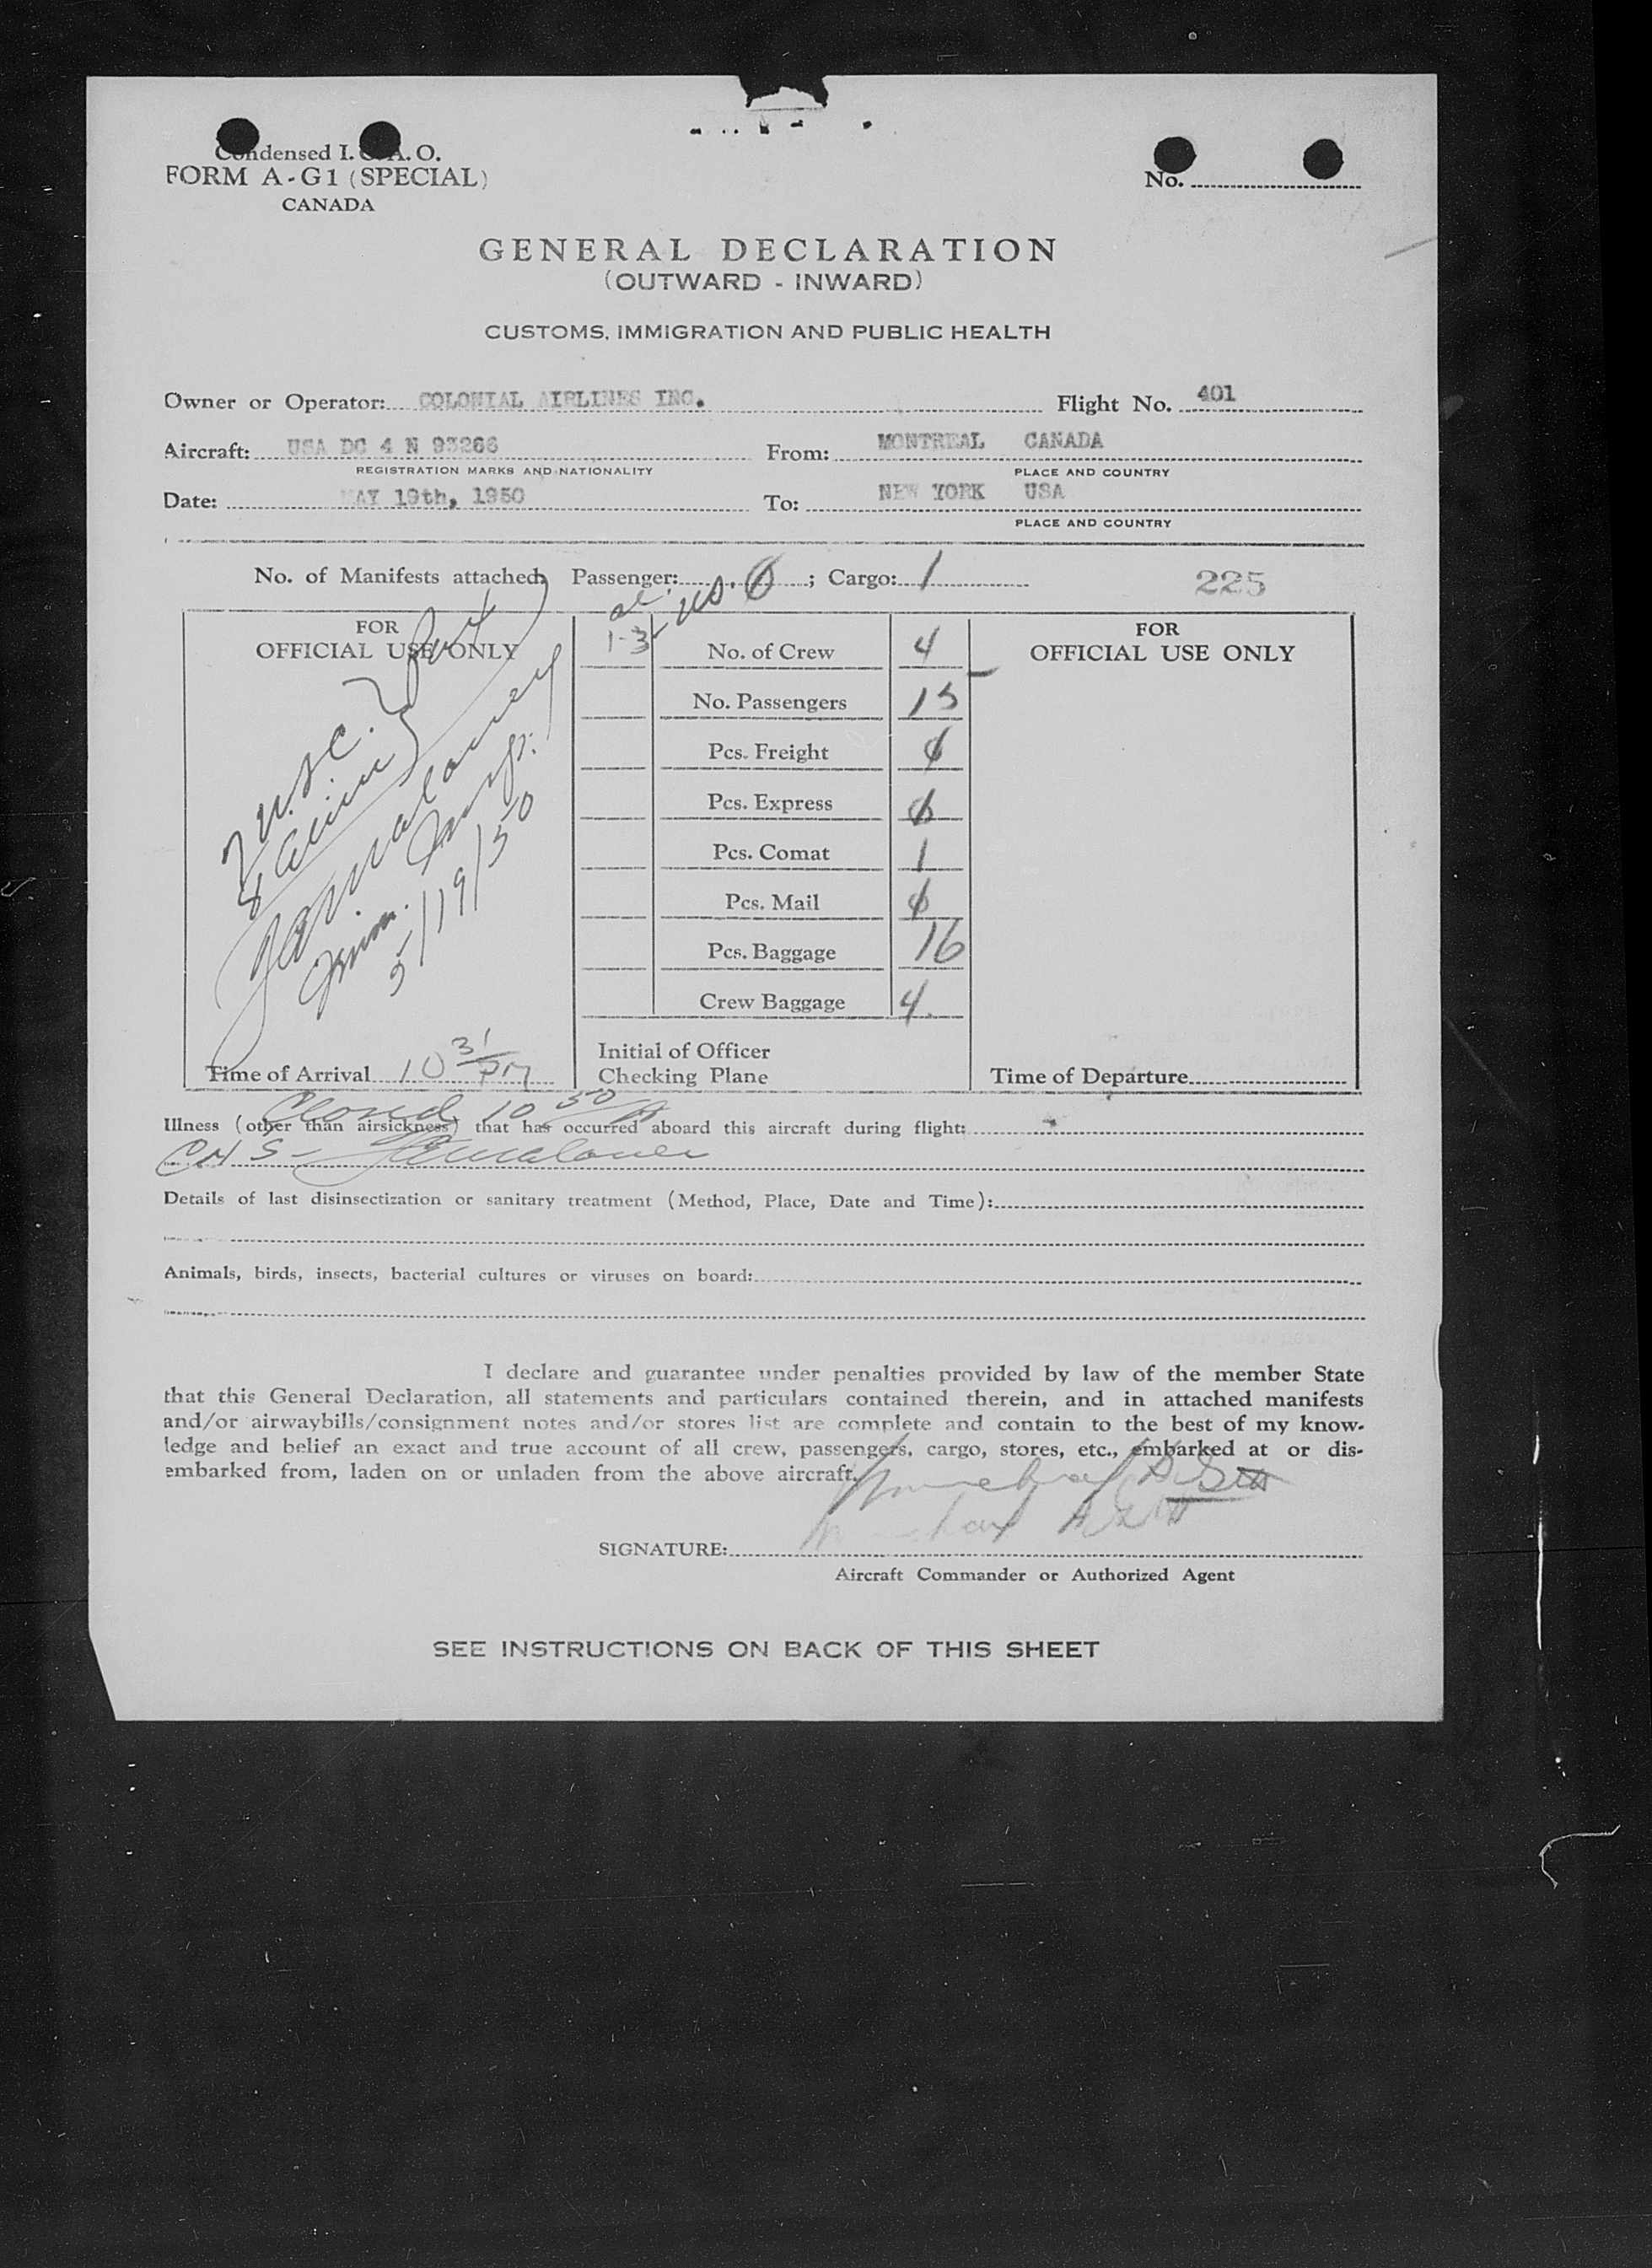 Condensed I. C. A. O.
FORM A-G1 (SPECIAL)
CANADA
No.
GENERAL DECLARATION
(OUTWARD - INWARD)
CUSTOMS, IMMIGRATION AND PUBLIC HEALTH
Owner or Operator: COLONIAL AIRLINES INC. Flight No. 401
Aircraft: USA DC 4 N 93266 From: MONTREAL CANADA
REGISTRATION MARKS AND NATIONALITY PLACE AND COUNTRY
Date: MAY 19th, 1950 To: NEW YORK USA
PLACE AND COUNTRY
No. of Manifests attached; Passenger: ; Cargo: 1 225
FOR
OFFICIAL USE ONLY
7 U.S.C.
8 Alien
Imm. Insp.
5/19/50
Time of Arrival 10 31 PM
1-3
No. of Crew 4
No. Passengers 15
Pcs. Freight 0
Pcs. Express 0
Pcs. Comat 1
Pcs. Mail 0
Pcs. Baggage 16
Crew Baggage 4
Initial of Officer
Checking Plane
FOR
OFFICIAL USE ONLY
Time of Departure
Closed 10 50
Illness (other than airsickness) that has occurred aboard this aircraft during flight:
Details of last disinsectization or sanitary treatment (Method, Place, Date and Time):
Animals, birds, insects, bacterial cultures or viruses on board:
I declare and guarantee under penalties provided by law of the member State
that this General Declaration, all statements and particulars contained therein, and in attached manifests
and/or airwaybills/consignment notes and/or stores list are complete and contain to the best of my know-
ledge and belief an exact and true account of all crew, passengers, cargo, stores, etc., embarked at or dis-
embarked from, laden on or unladen from the above aircraft.
SIGNATURE:
Aircraft Commander or Authorized Agent
SEE INSTRUCTIONS ON BACK OF THIS SHEET